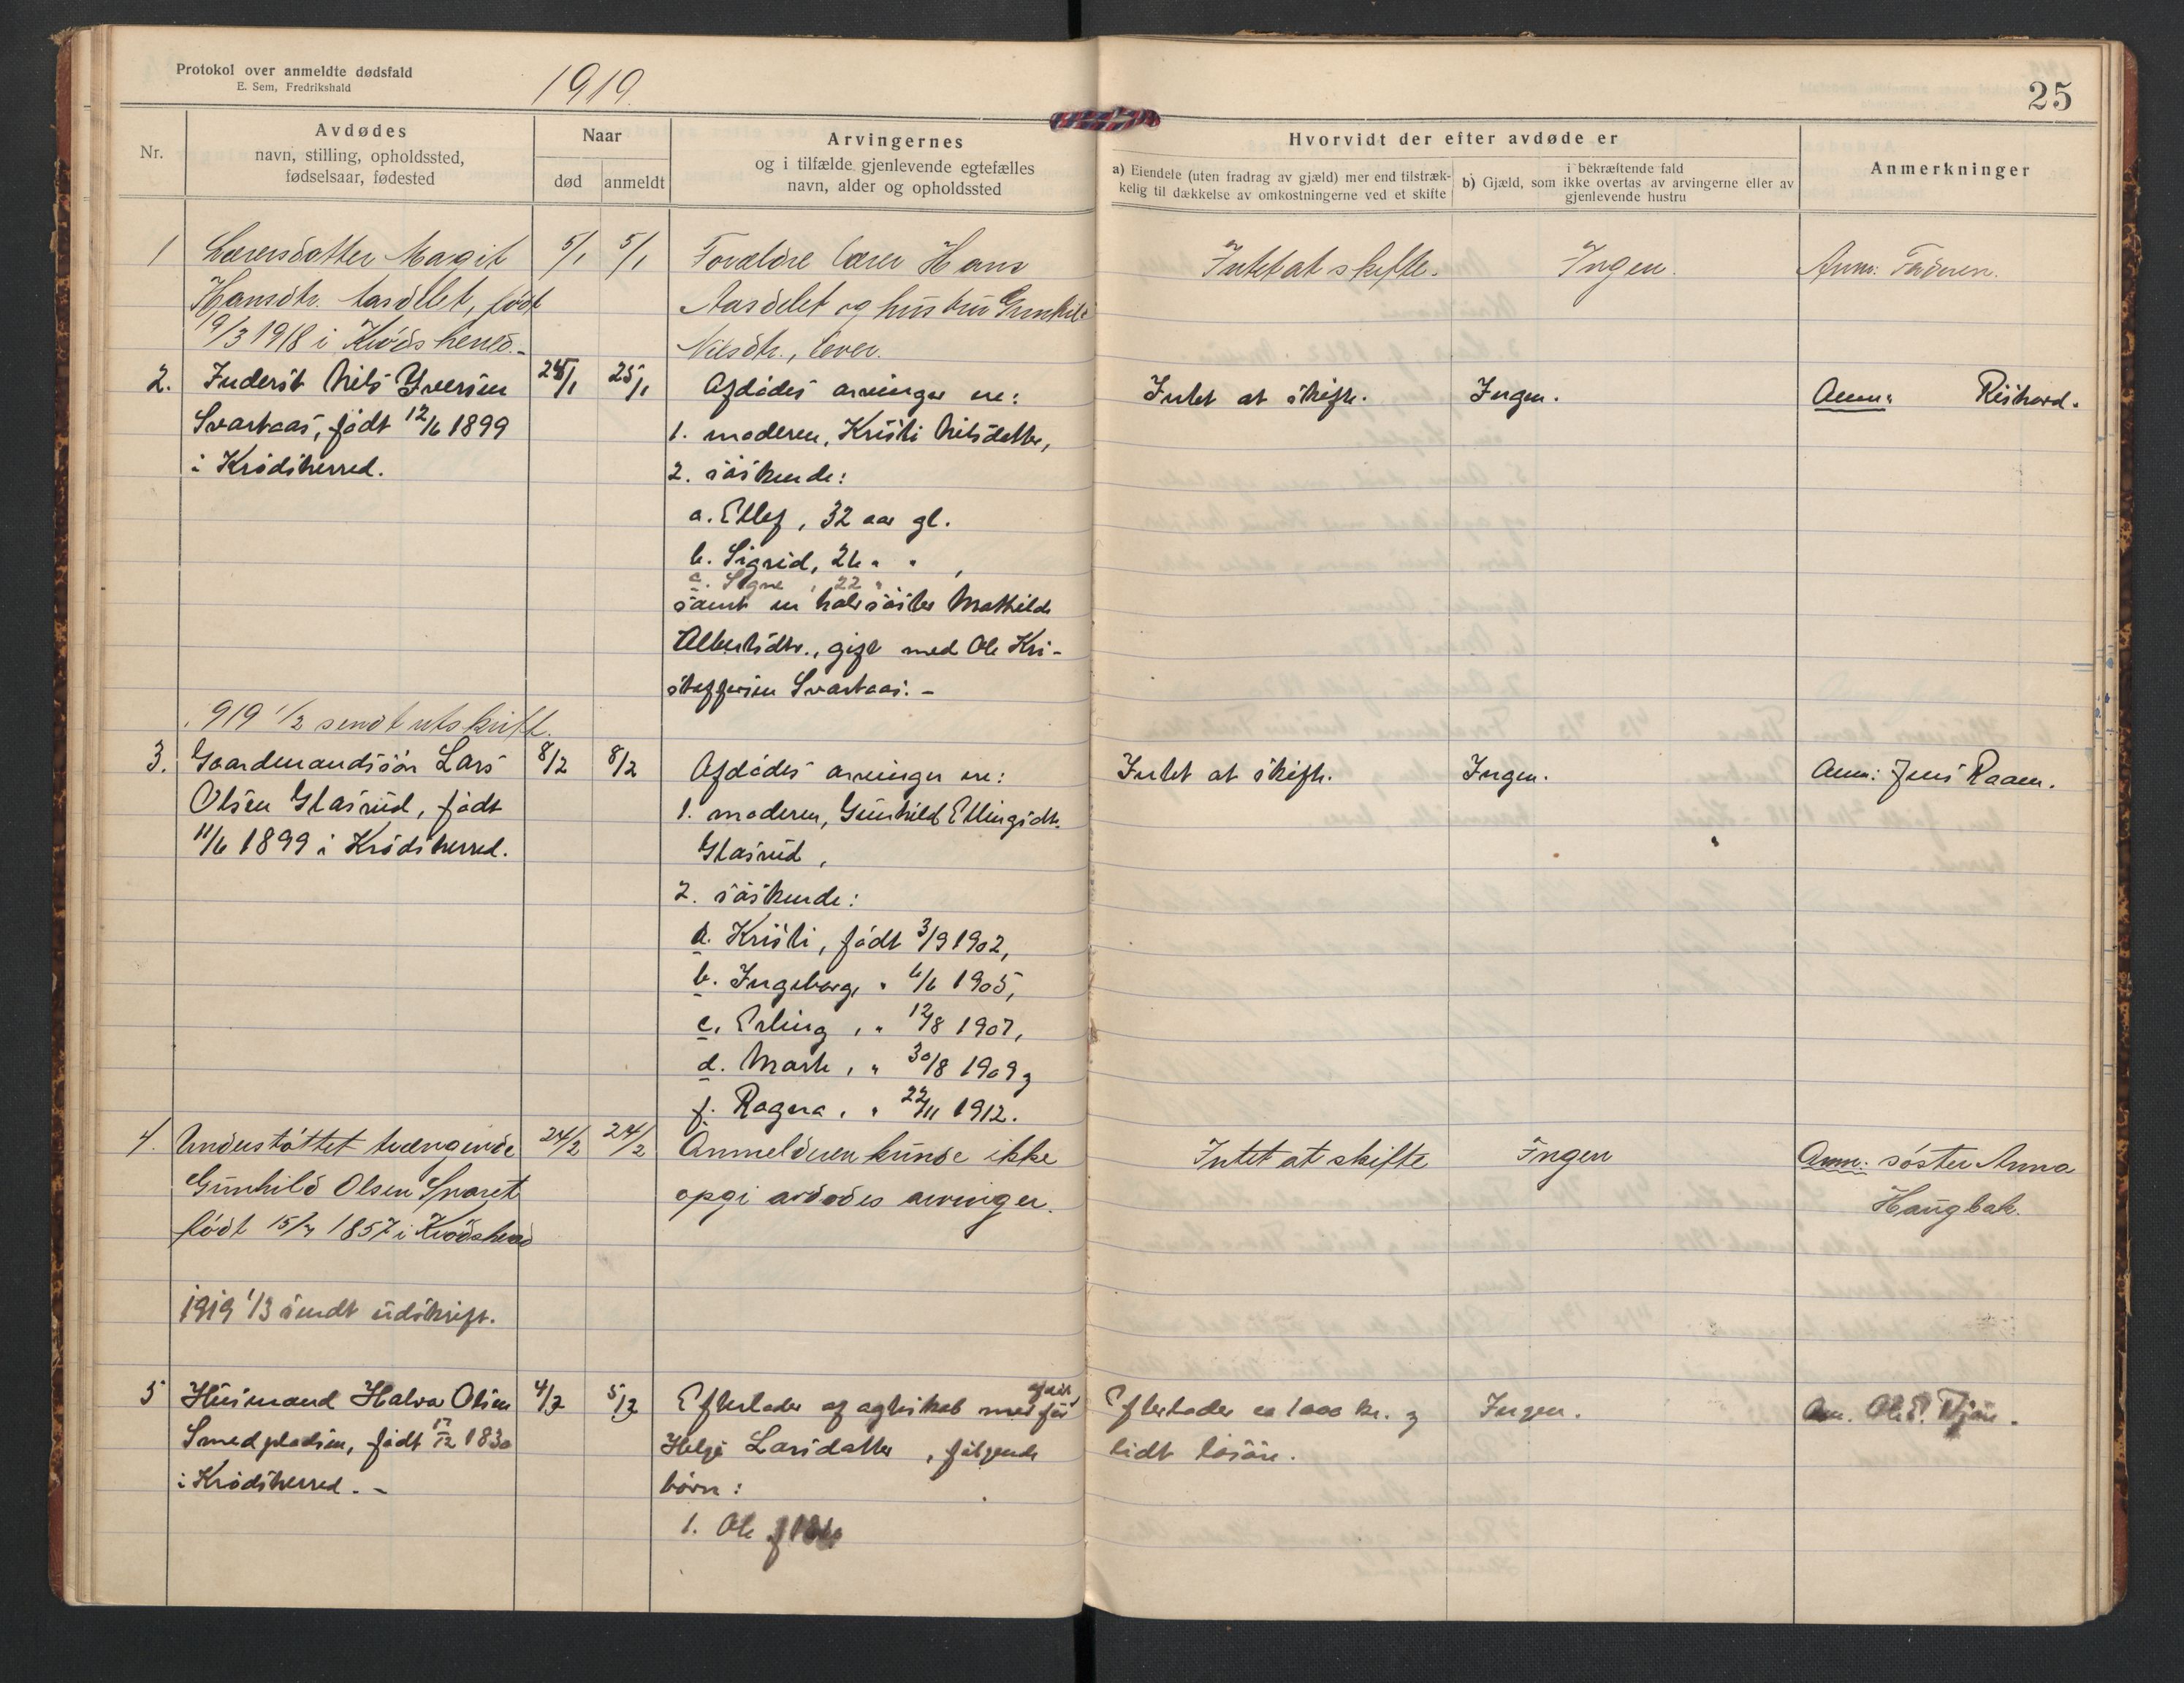 Protokol over anmeldte dødsfald
E. Sem, Fredrikshald
1919.
25
Nr.
Avdødes
navn, stilling, opholdssted,
fødselsaar, fødested
Naar
død
anmeldt
Arvingernes
og i tilfælde gjenlevende egtefælles
navn, alder og opholdssted
Hvorvidt der efter avdøde er
a) Eiendele (uten fradrag av gjæld) mer end tilstræk-
kelig til dækkelse av omkostningerne ved et skifte
i bekræftende fald
b) Gjæld, som ikke overtas av arvingerne eller av
gjenlevende hustru
Anmerkninger
1 Lærersdatter Magit 5/1 5/1 Forældre lærer Hans Intet at skifte. Ingen. Anm: Faderen.
Hansdtr. Aasdllet, født Aasdelet og hustru Gunhild
19/3 1918 i Krødsherred.- Nilsdtr., lever.
2. Inderst Nils Iversen 25/1 Afdødes arvinger ere: Intet at skifte. Ingen. Anm:
Svartaas, født 12/6 1899 1. moderen, Kristi Nilsdatter,
i Krødsherred. 2. søskende:
a. Ellef, 32 aar gl.
b. Sigrid, 26 " " ,
c. Signe, 22 "
samt en halvsøster Mathilde
Albertsdtr., gift med Ole Kri-
stoffersen Svartaas. -
919 1/2 sendt utskrift.
3. Gaardmandssøn Lars 8/2 8/2 Afdødes arvinger ere: Intet at skifte. Ingen. Anm: Jens Raaen.
Olsen Glasrud, født 1. moderen, Gunhild Ellingsdtr.
11/6 1899 i Krødsherred. Glasrud,
2. søskende:
a. Kristi, født 3/9 1902,
b. Ingeborg, " 6/6 1905,
c. Erling, " 12/8 1907,
d. Marte, " 30/8 1909 og
f. Ragna, " 22/11 1912.
4. Understøttet trængende 24/2 24/2 Anmelderen kunde ikke Intet at skifte Ingen Anm: søster Anna
Gunhild Olsen Snaret opgi avdødes arvinger. Haugbak.
født 15/4 1857 i Krødsherad
1919 1/3 sendt udskrift.
5 Husmand Halvor Olsen 4/3 5/3 Efterlader af ægteskab med afdød Efterlader ca 1000 kr. og Ingen. Am. Ole
Smedpladsen, født 17/12 1830 Helge Larsdatter, følgende lidt løsøre.
i Krødsherred. - børn:
1. Ole